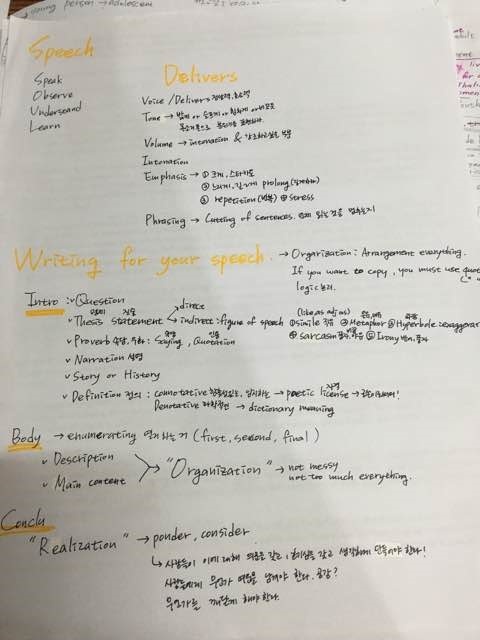 young person → adolescent
Speech
Speak
Observe
Understand
Learn
Delivers
Voice / Delivers 전달력, 호소력
Tone → 밝게 or 슬프게 or
목소리톤으로 분위기를 표현하라.
Volume → intonation & 강조하고싶은 부분
Intonation
Emphasis → ① 크게, 스타카토
② 느리게, 길게 prolong (길게하다)
③ repetition (반복) ④ stress
Phrasing → Cutting of sentences. 어디 있는 것을 멈추는지
Writing for your speech.
→ Organization : Arrangement everything.
If you want to copy, you must use quo
logic 논리.
Intro : ✓ Question
✓ Thesis statement → direct
→ indirect : figure of speech (like, as adj as) ① simile 직유 ② Metaphor ③ Hyperbole exaggerat
✓ Proverb 속담, Saying, Quotation 인용
④ sarcasm 풍자, ⑤ Irony 반어, 풍자
✓ Narration 설명
✓ Story or History
✓ Definition 정의 : connotative 함축성있는, 암시하는 → poetic license →
Denotative → dictionary meaning
Body → enumerating 열거하는거 (first, second, final)
✓ Description
✓ Main content
"Organization" → not messy
not too much everything.
Conclu
"Realization" → ponder, consider
↳ 사람들이 이에 대해 의문을 갖고, 생각하게 만들어야 한다!
사람들에게 무언가 여운을 남겨야 한다. 공감?
무언가를 깨닫게 해야한다.